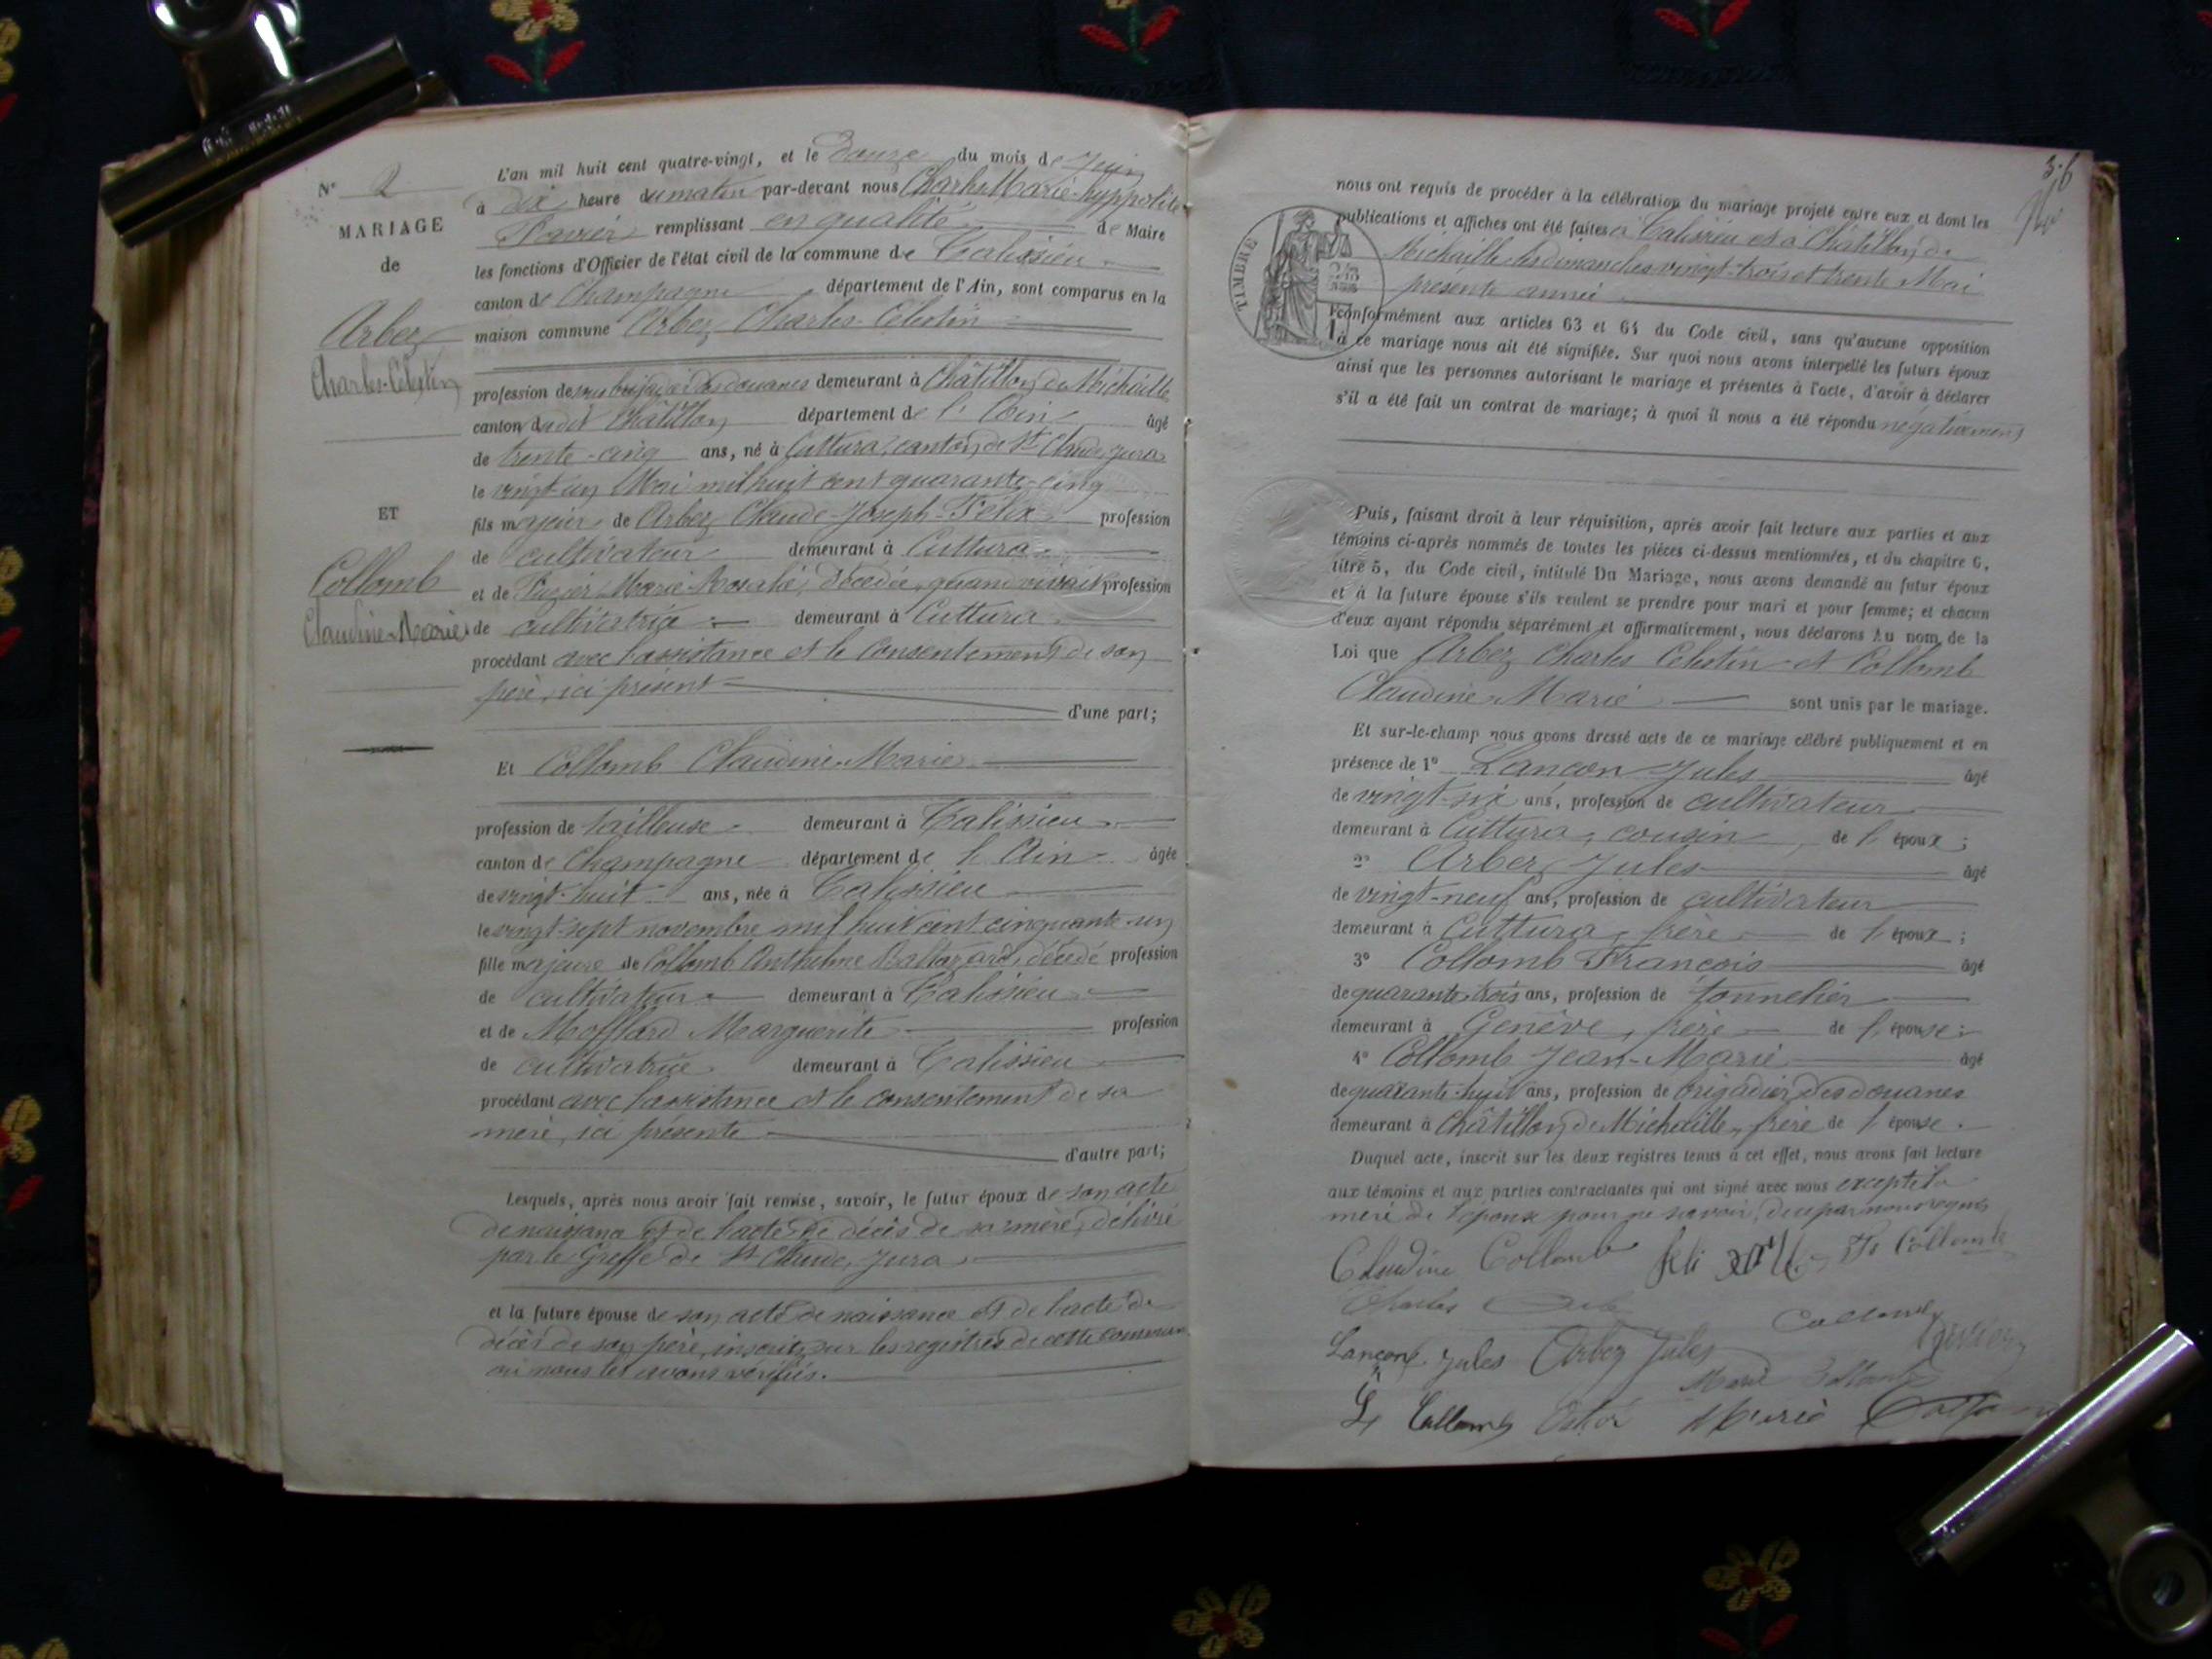 N° 2
MARIAGE
de
Arbez
Charles-Célestin
ET
Collomb
Claudine-Marie
L'an mil huit cent quatre-vingt, et le douze du mois de Juin
à dix heure du matin par-devant nous Charles Marie-hyppolite
remplissant en qualité de Maire
les fonctions d'Officier de l'état civil de la commune de Talissieu
canton de Champagne département de l'Ain, sont comparus en la
maison commune Arbez Charles-Célestin
profession de sous brigadier des douanes demeurant à Châtillon de Michaille
canton dudit Châtillon département de l'Ain âgé
de trente-cinq ans, né à Cuttura, canton de St Claude, Jura
le vingt-un Mai mil huit cent quarante-cinq
fils majeur de Arbez Claude-Joseph-Félix profession
de cultivateur demeurant à Cuttura
et de Marie-Rosalie, Décédée, quand vivait profession
de cultivatrice demeurant à Cuttura
procédant avec l'assistance et le consentement de son
père, ici présent
d'une part;
Et Collomb Claudine-Marie
profession de tailleuse demeurant à Talissieu
canton de Champagne département de l'Ain âgée
de vingt-huit ans, née à Talissieu
le vingt-sept novembre mil huit cent cinquante-un
fille majeure de Collomb Anthelme Baltazard, décédé profession
de cultivateur demeurant à Talissieu
et de Marguerite profession
de cultivatrice demeurant à Talissieu
procédant avec l'assistance et le consentement de sa
mère, ici présente
d'autre part;
Lesquels, après nous avoir fait remise, savoir, le futur époux de son acte
de naissance et de l'acte de décès de sa mère, délivré
par le Greffe de St Claude, Jura
et la future épouse de son acte de naissance et de l'acte de
décès de son père, inscrits sur les registres de cette commune
où nous les avons vérifiés.
36
TIMBRE
nous ont requis de procéder à la célébration du mariage projeté entre eux et dont les
publications et affiches ont été faites à Talissieu et à Châtillon de
Michaille les dimanches vingt-trois et trente Mai
présente année
conformément aux articles 63 et 64 du Code civil, sans qu'aucune opposition
à ce mariage nous ait été signifiée. Sur quoi nous avons interpellé les futurs époux
ainsi que les personnes autorisant le mariage et présentes à l'acte, d'avoir à déclarer
s'il a été fait un contrat de mariage; à quoi il nous a été répondu négativement
Puis, faisant droit à leur réquisition, après avoir fait lecture aux parties et aux
témoins ci-après nommés de toutes les pièces ci-dessus mentionnées, et du chapitre 6,
titre 5, du Code civil, intitulé Du Mariage, nous avons demandé au futur époux
et à la future épouse s'ils veulent se prendre pour mari et pour femme; et chacun
d'eux ayant répondu séparément et affirmativement, nous déclarons Au nom de la
Loi que Arbez Charles Célestin et Collomb
Claudine-Marie sont unis par le mariage.
Et sur-le-champ nous avons dressé acte de ce mariage célébré publiquement et en
présence de 1° Lançon Jules âgé
de vingt-six ans, profession de cultivateur
demeurant à Cuttura, cousin, de l'époux;
2° Arbez Jules âgé
de vingt-neuf ans, profession de cultivateur
demeurant à Cuttura, frère de l'époux;
3° Collomb François âgé
de quarante-trois ans, profession de tonnelier
demeurant à Genève, frère de l'épouse;
4° Collomb Jean-Marie âgé
de quarante-huit ans, profession de brigadier des douanes
demeurant à Châtillon de Michaille, frère de l'épouse.
Duquel acte, inscrit sur les deux registres tenus à cet effet, nous avons fait lecture
aux témoins et aux parties contractantes qui ont signé avec nous excepté la
mère de l'épouse pour ne savoir, de ce par nous requis
Claudine Collomb Fs Collomb
Charles Collomb
Lançon Jules Arbez Jules
Marie Collomb
Collomb Marie